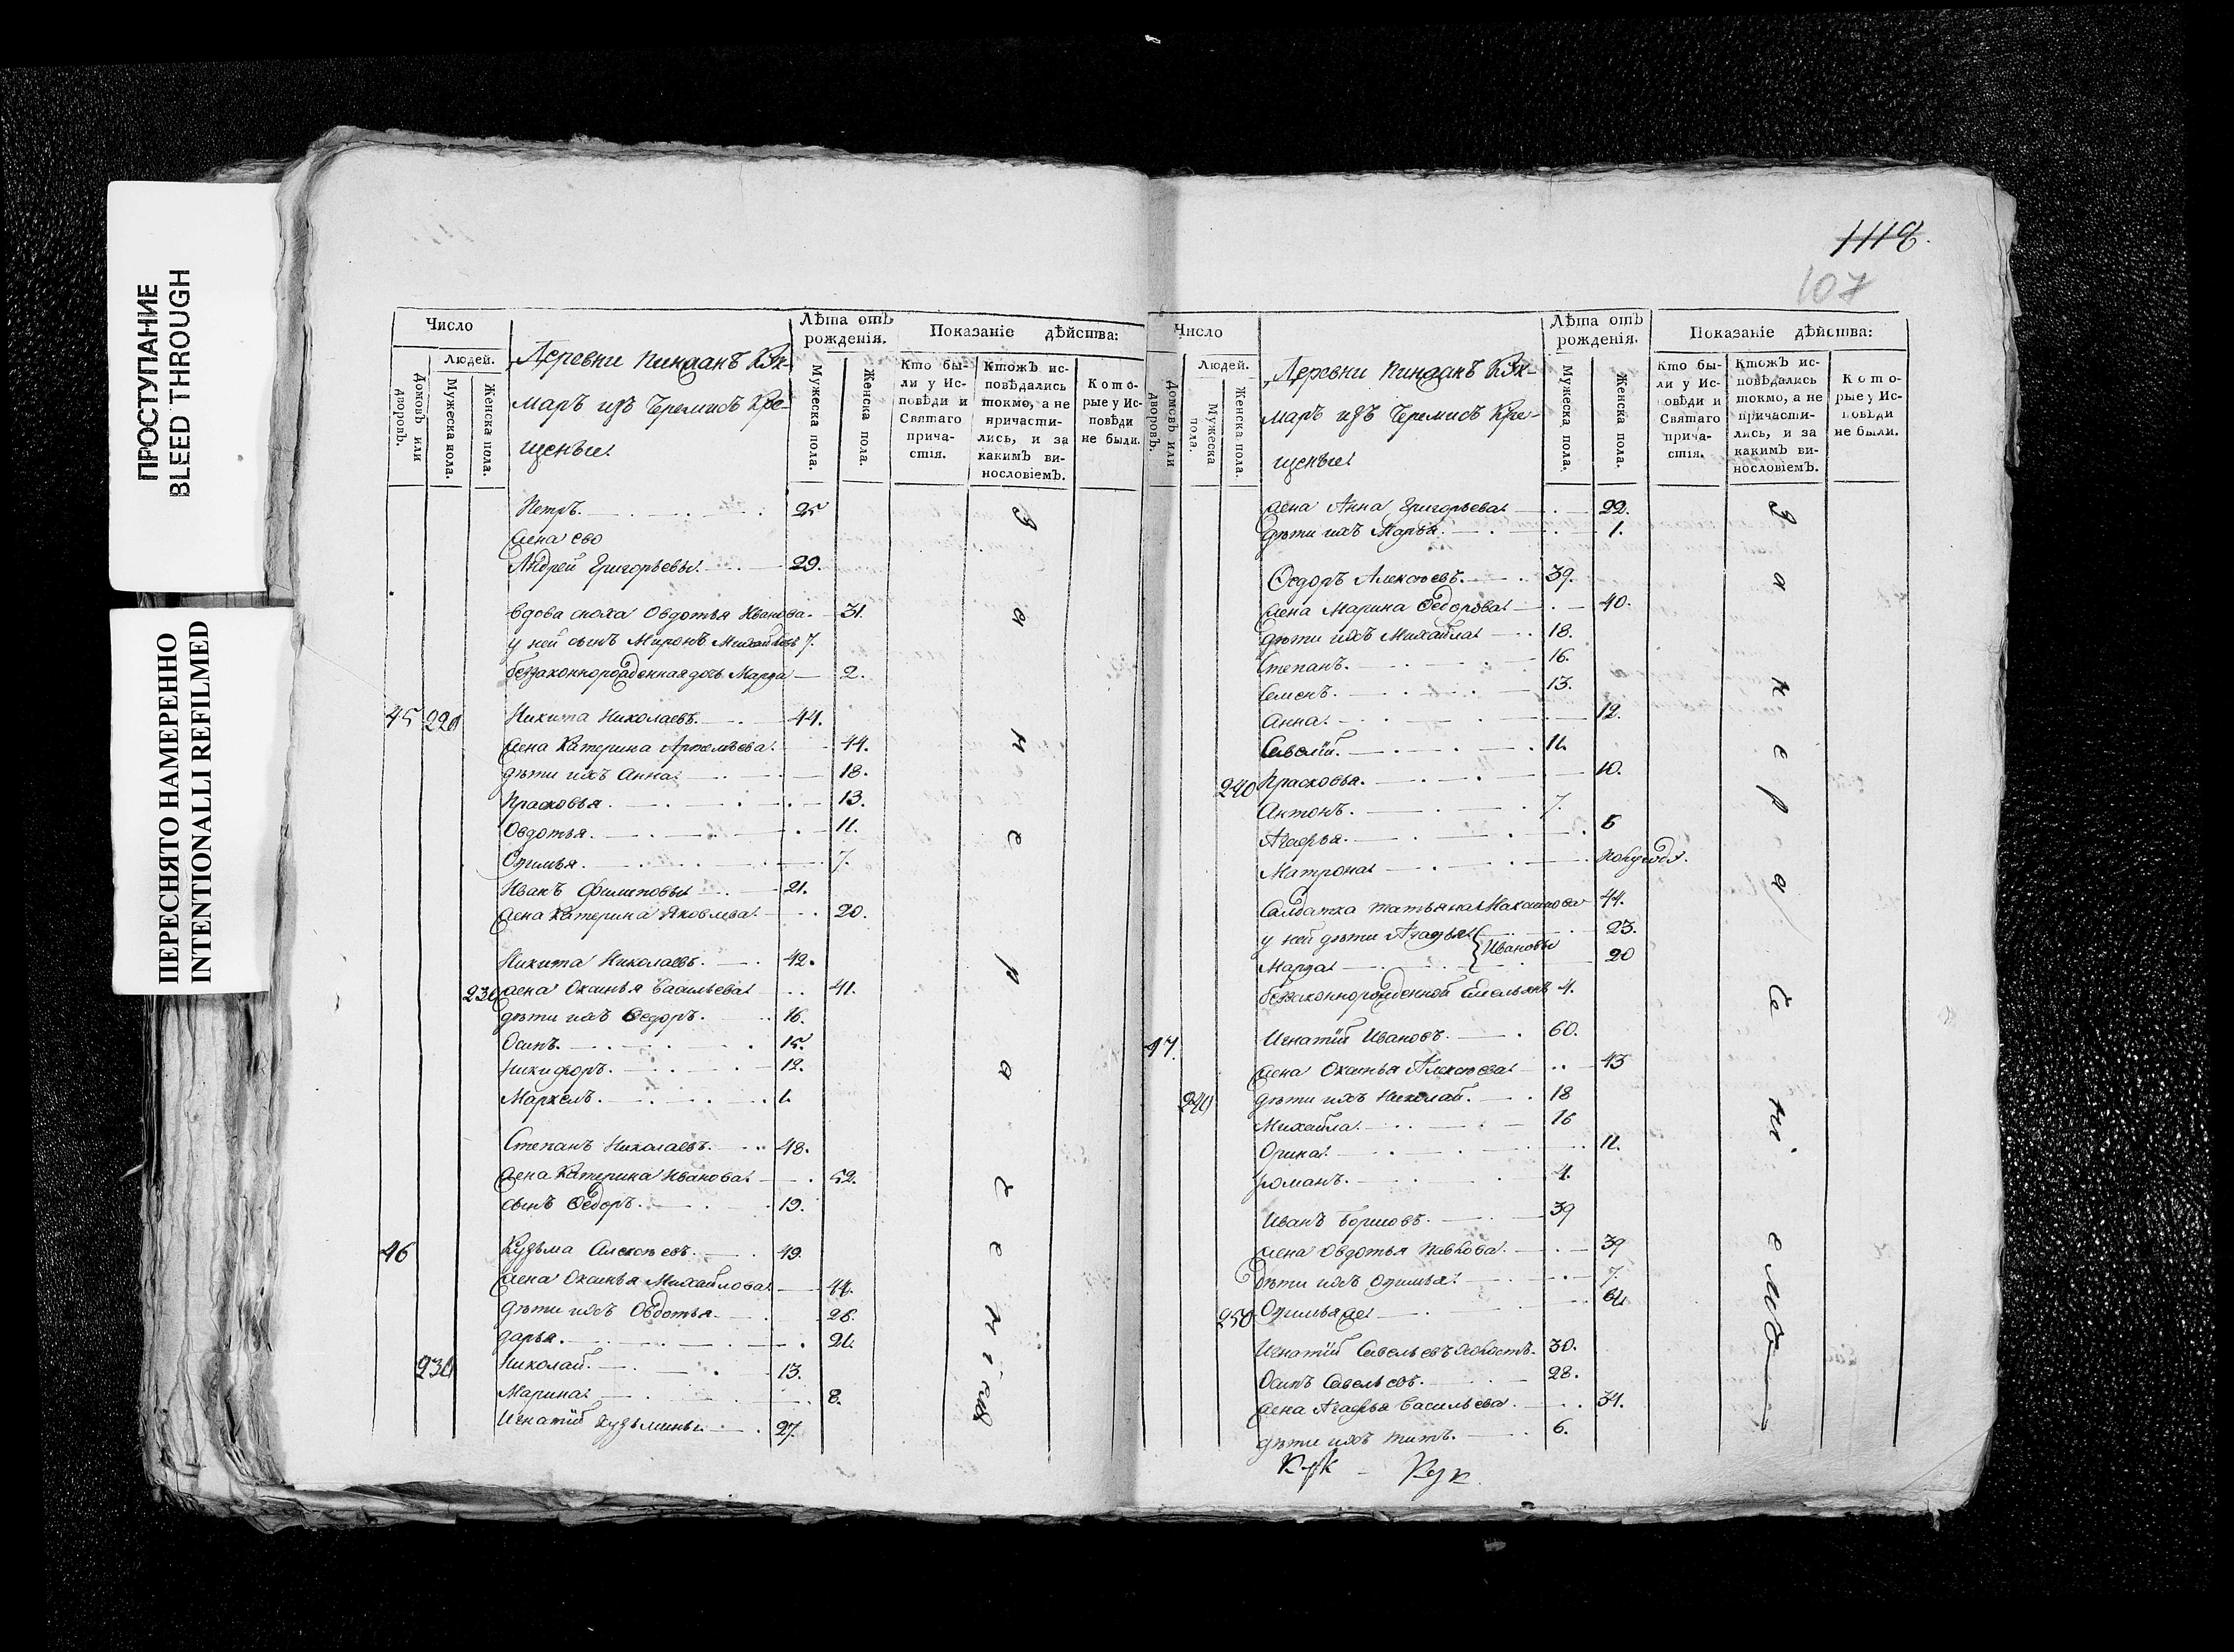 ПРОСТУПАНИЕ
BLEED THROUGH
ПЕРЕСНЯТО НАМЕРЕННО
INTENTIONALLI REFILMED
Число
Людей.
Домовъ или дворовъ.
Мужеска пола.
Женска пола.
Деревни Пингланъ Кук-
маръ изъ Черемисъ Кре-
щеныя
Лѣта отъ рожденія.
Мужеска пола.
Женска пола.
Показаніе дѣйства:
Кто бы-
ли у Ис-
повѣди и
Святаго
прича-
стія.
Ктожъ ис-
повѣдались
токмо, а не
причасти-
лись, и за
какимъ ви-
нословіемъ.
Кото-
рые у Ис-
повѣди
не были.
Петръ. 25
жена ево
Андрей Григорьевы 29.
вдова сноха Овдотья Иванова 31.
у ней сынъ Миронъ Михайловъ 7.
беззаконнорожденная дочь Марфа 2.
45 220 Никита Николаевъ. 44.
жена Катерина Артемьева 44.
дѣти ихъ Анна 18.
Прасковья. 13.
Овдотья. 11.
Офимья. 7.
Иванъ Филиповы 21.
жена Катерина Яковлева 20.
Никита Николаевъ. 42.
230 жена Оксинья Васильева 41.
дѣти ихъ Федоръ. 16.
Осипъ. 15.
Никифоръ. 12.
Маркелъ. 1.
Степанъ Николаевъ. 48.
жена Катерина Иванова 52.
сынъ Федоръ. 19.
46 Кузьма Алексѣевъ. 49.
жена Оксинья Михайлова 44.
дѣти ихъ Овдотья. 26.
дарья. 21.
230 Николай. 13.
Марина 8.
Игнатій Кузьмины 27.
за нерачениіемъ
1112.
107
Число
Людей.
Домовъ или дворовъ.
Мужеска пола.
Женска пола.
Деревни Пингланъ Кук-
маръ изъ Черемисъ Кре-
щеныя
Лѣта отъ рожденія.
Мужеска пола.
Женска пола.
Показаніе дѣйства:
Кто бы-
ли у Ис-
повѣди и
Святаго
прича-
стія.
Ктожъ ис-
повѣдались
токмо, а не
причасти-
лись, и за
какимъ ви-
нословіемъ.
Кото-
рые у Ис-
повѣди
не были.
жена Анна Григорьева 22.
дѣти ихъ Марья. 1.
Федоръ Алексѣевъ. 39.
жена Марина Федорова 40.
дѣти ихъ Михайла 18.
Степанъ. 16.
Семенъ. 13.
Анна 12.
Савелій. 11.
240 Прасковья. 10.
Антонъ. 7.
Агафья. 5
Матрона полугода.
Салдатка Татьяна Максимова 44.
у ней дѣти Агафья 23.
Ивановы
Марфа 20
беззаконнорожденной Емельянъ 4.
47. Игнатій Ивановъ. 60.
жена Оксинья Алексѣева 43
240 дѣти ихъ Николай. 18
Михайла 16
Орина 11.
романъ. 4.
Иванъ Борисовъ. 39
жена Овдотья Павлова 39
дѣти ихъ Офимья 7.
250 Офимья же 61.
Игнатій Савельевъ холостъ. 30.
Осипъ Савельевъ. 28.
жена Агафья Васильева. 34.
дѣти ихъ Титъ. 6.
за нерачениемъ
Кук - Кук.